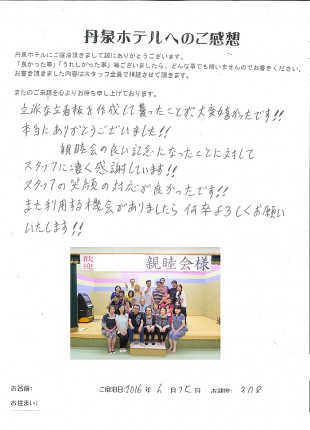 丹泉ホテルへのご感想
丹泉ホテルにご宿泊頂きまして誠にありがとうございます。
「良かった事」「うれしかった事」等ございましたら、どんな事でも構いませんのでお書きください。
お書き頂きました内容はスタッフ全員で拝読させて頂きます。
またのご来館を心よりお待ち申し上げております。
立派な立看板を作成して貰ったことが、大変嬉かったです!!
本当にありがとうございました!!
親睦会の良い記念になったことに対して
スタッフに凄く感謝しています!!
スタッフの笑顔の対応が良かったです!!
また利用する機会がありましたら何卒よろしくお願い
いたします!!
歓迎 親睦会様
お名前: ご宿泊日:2016年6月25日 お部屋:308
お住まい: